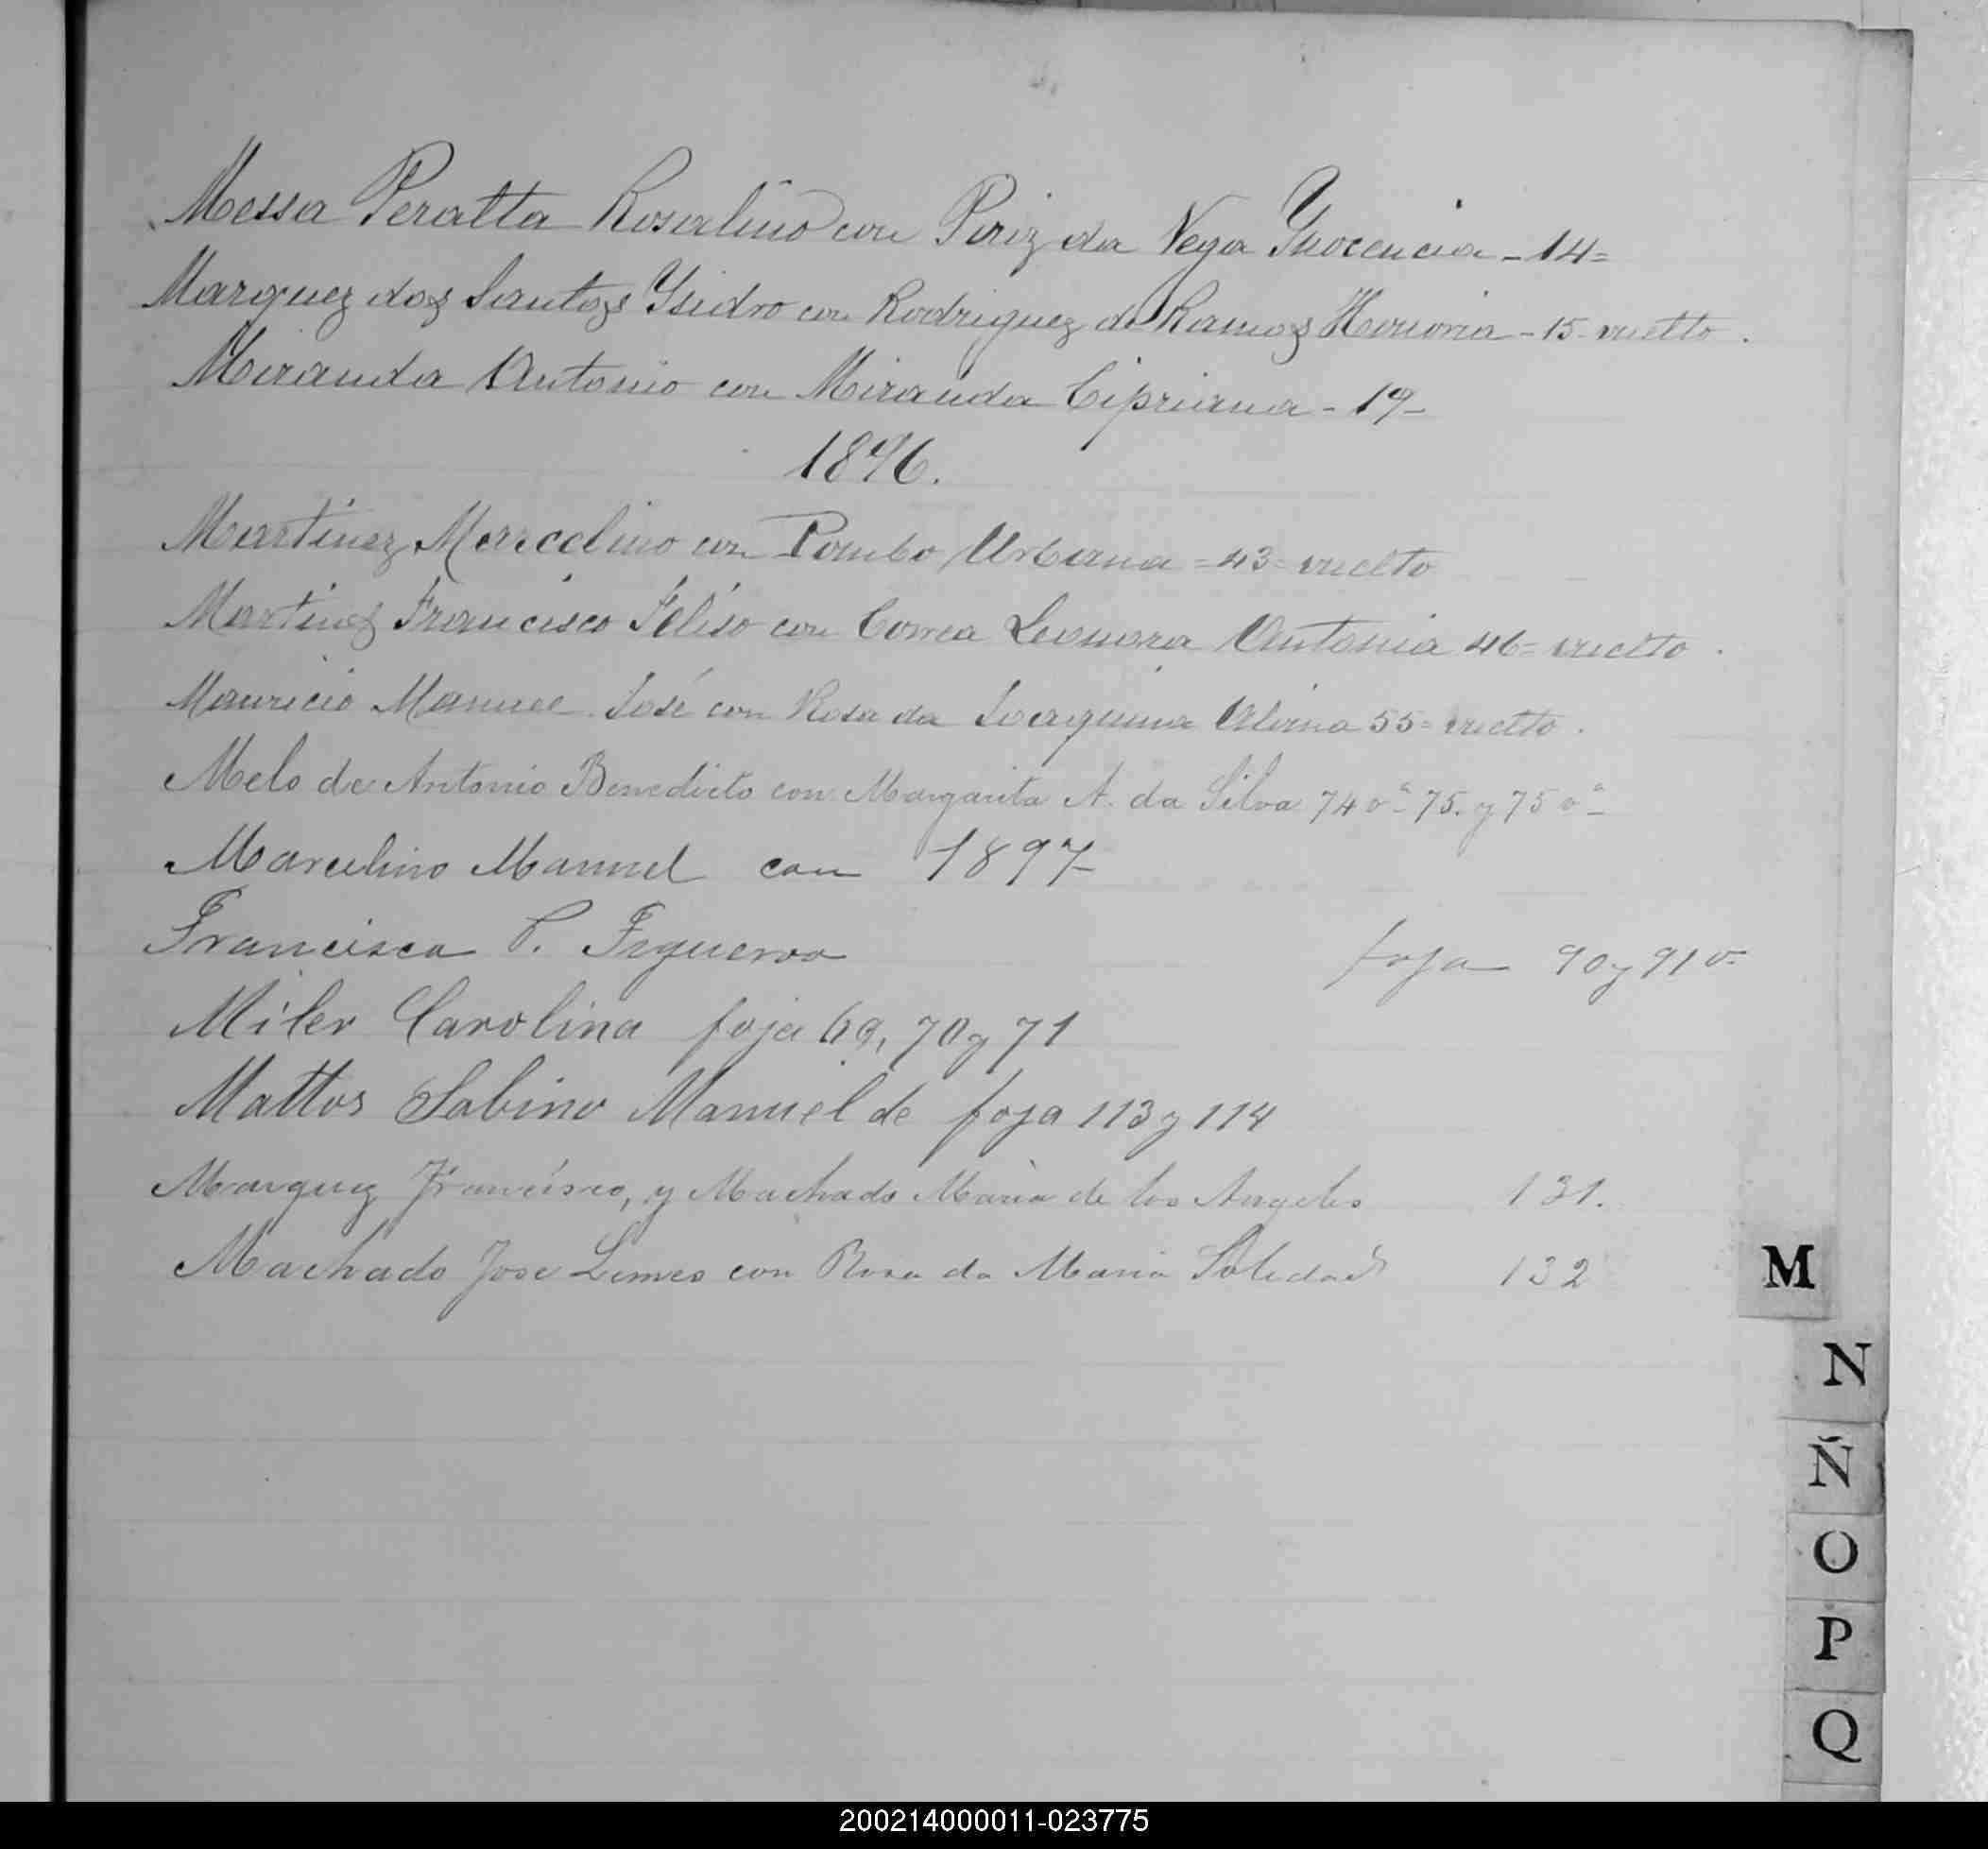 Messa Peralta Rosalino con Piriz da Vega Ynocencia - 14 =
Marquez dos Santos Ysidro con Rodriguez de Ramos Honoria - 15 - vuelto.
Miranda Antonio con Miranda Cipriana - 19 -
1896.
Martinez Marcelino con Pombo Urbana = 43 = vuelto
Martinez Francisco Feliso con Correa Leonora Antonia 46 = vuelto
Mauricio Manuel José con Rosa da Joaquina Albina 55 = vuelto.
Melo de Antonio Benedicto con Margarita A. da Silva 74 va 75. y 75 va
Marcelino Manuel con 1897
Francisca P. Figueroa foja 90 y 91 v
Miler Carolina foja 69, 70 y 71
Mattos Sabino Manuel de foja 113 y 114
Marquez Francisco, y Machado Maria de los Angeles 131.
Machado Jose Lemes con Rosa da Maria Soledad 132
M
N
Ñ
O
P
Q
200214000011-023775